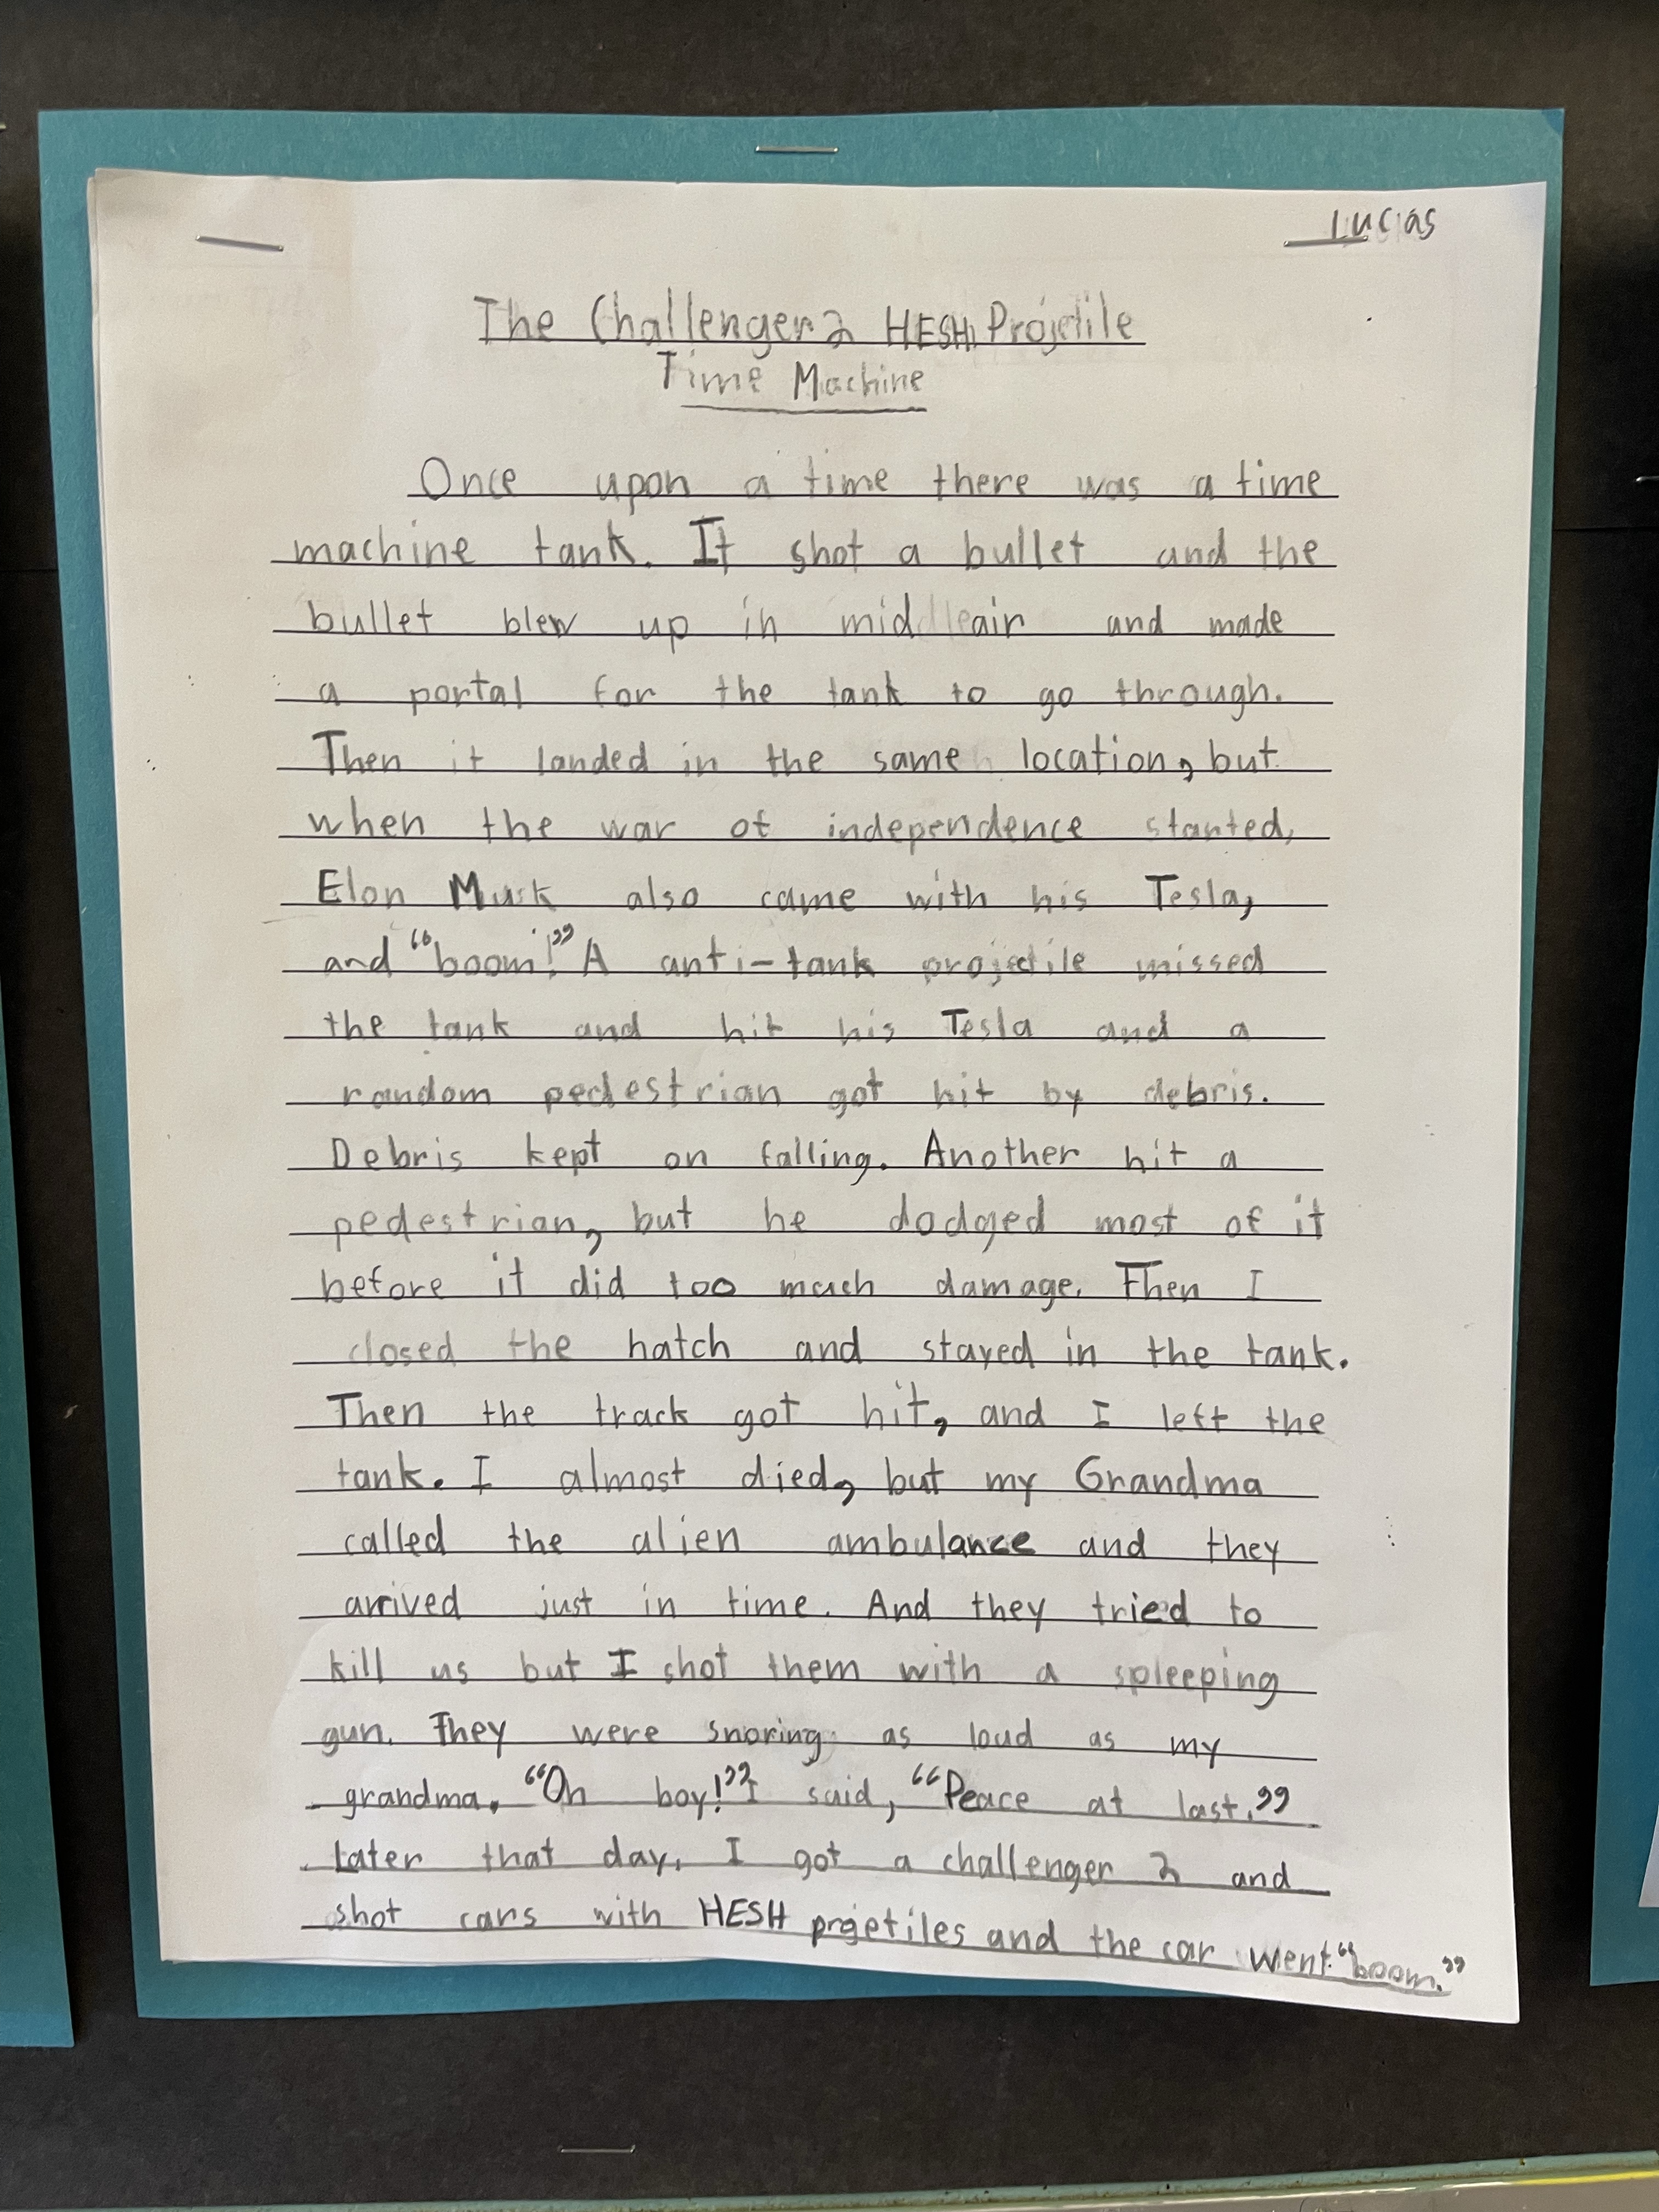 Lucas
The Challenger 2 HESH Projetile
Time Machine
Once upon a time there was a time
machine tank. It shot a bullet and the
bullet blew up in mid air and made
a portal for the tank to go through.
Then it landed in the same location, but
when the war of independence started,
Elon Musk also came with his Tesla,
and “boom!” A anti-tank projectile missed
the tank and hit his Tesla and a
random pedestrian got hit by debris.
Debris kept on falling. Another hit a
pedestrian, but he dodged most of it
before it did too much damage. Then I
closed the hatch and stayed in the tank.
Then the track got hit, and I left the
tank. I almost died, but my Grandma
called the alien ambulance and they
arrived just in time. And they tried to
kill us but I shot them with a spleeping
gun. They were snoring as loud as my
grandma. “Oh boy!” I said, “Peace at last.”
Later that day, I got a challenger 2 and
shot cars with HESH projetiles and the car went “boom.”